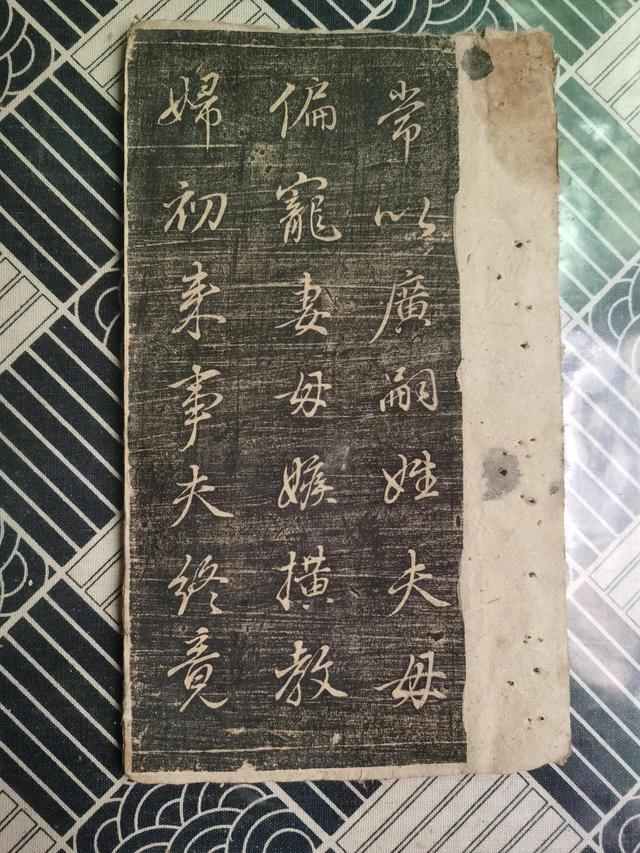 常以廣嗣姓夫毋
偏寵妻毋嫉橫教
婦初来事夫终竟